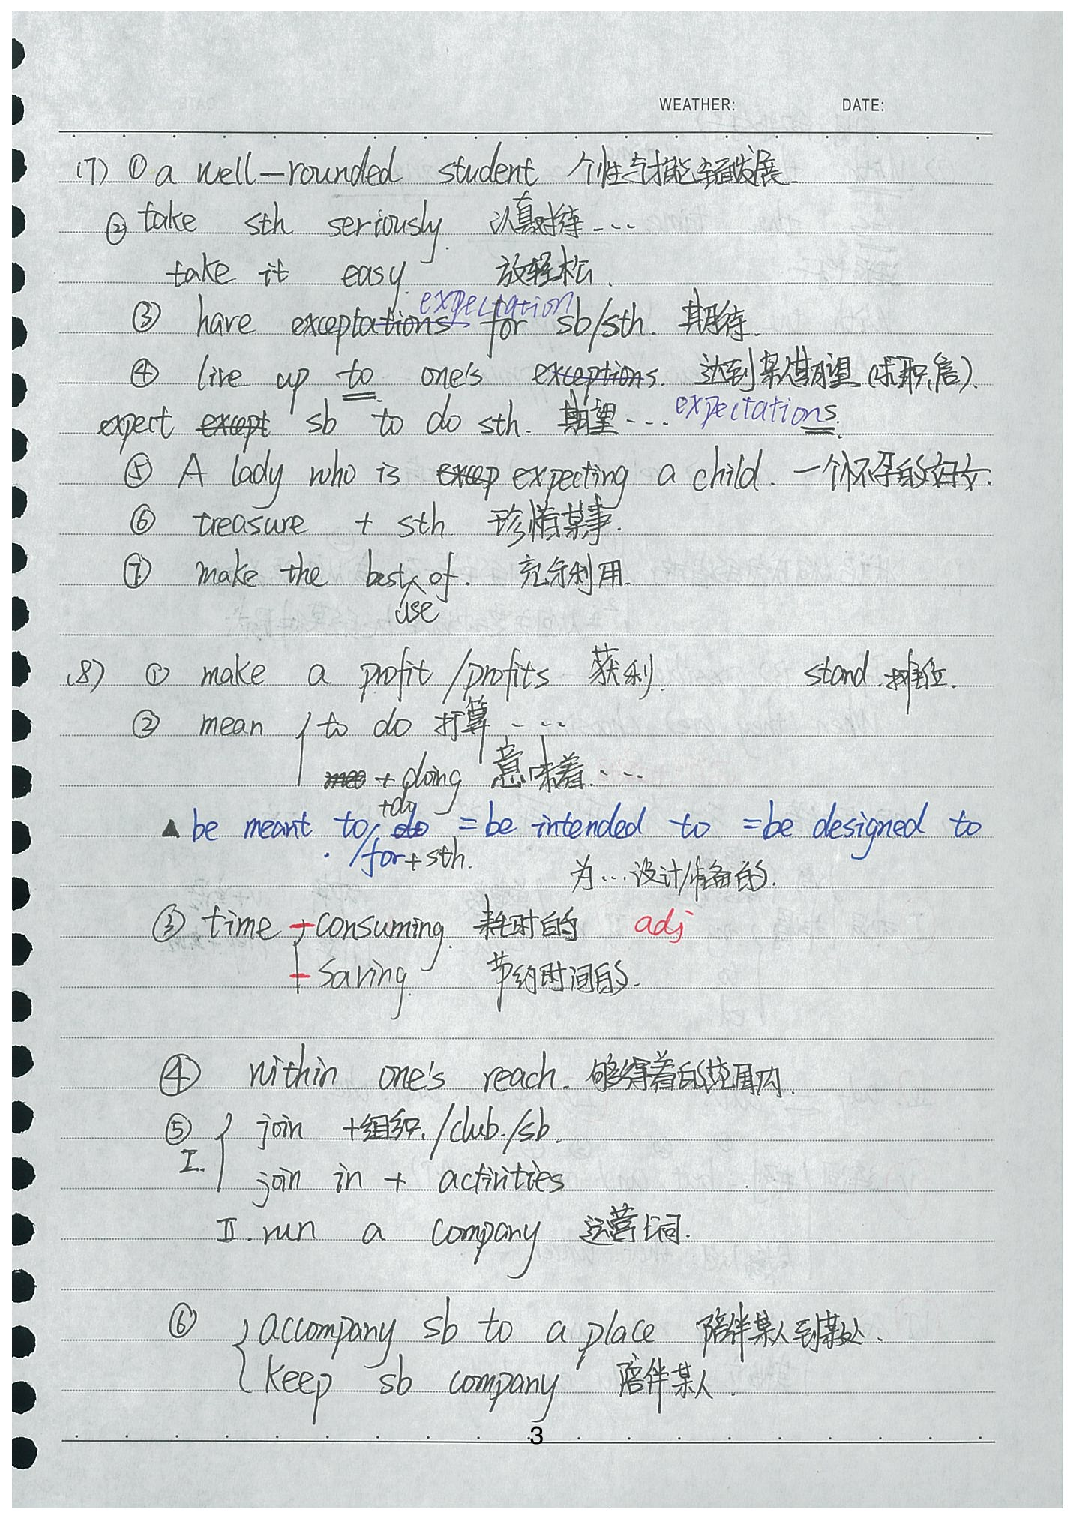 WEATHER: DATE:
(7) ① a well-rounded student 个性与才能全面发展
② take sth seriously. 认真对待...
take it easy. 放轻松.
expectation
③ have exceptations for sb/sth. 期待.
④ live up to one's exceptions. 达到某人期望 (求职信).
expectations
expert except sb to do sth. 期望...
⑤ A lady who is excep expecting a child. 一个怀孕的妇女.
⑥ treasure + sth 珍惜某事.
⑦ make the best of. 充分利用.
use
(8) ① make a profit/profits 获利. stand 摊位.
② mean to do 打算....
mea + doing 意味着...
+do
▲ be meant to do = be intended to = be designed to
/for + sth.
为...设计/准备的.
③ time - consuming. 耗时的 adj
- saving. 节约时间的.
④ within one's reach. 够得着的范围内.
⑤ join +组织./club./sb.
I.
join in + activities
II. run a company 运营公司.
⑥ accompany sb to a place 陪伴某人到某处.
keep sb company 陪伴某人.
3